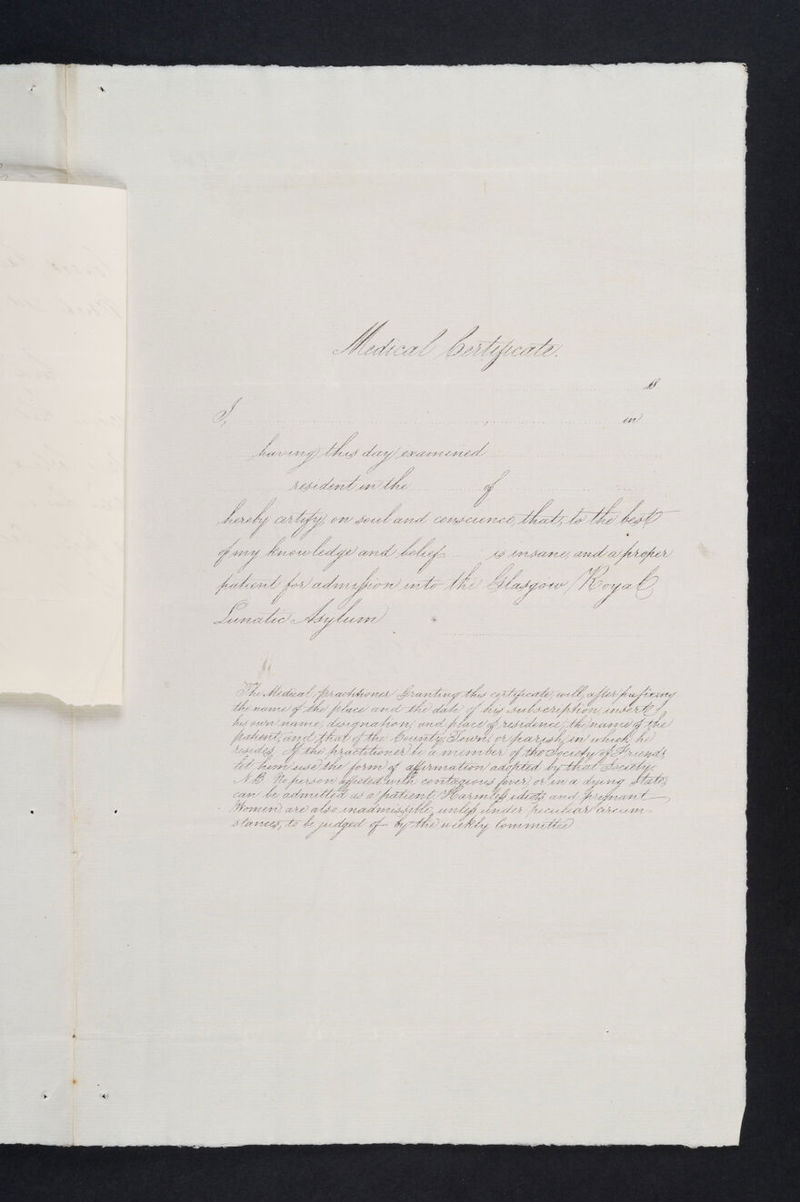 Medical Certificate.
18
I, in
having this day examined
resident in the of
hereby certify on soul and conscience, that, to the best
of my knowledge and belief is insane, and a proper
patient for admission into the Glasgow Royal
Lunatic Asylum
The Medical practitioner Granting this certificate, will, after prefixing
the name of the place and the date of his subscription, insert
his own name, designation, and place of residence; the name of the
patient; and that of the County, Town, or parish, in which he
resides. If the practitioner be a member of the Society of Friends
let him use the form of affirmation adopted by that Society.
N.B. No person affected with contagious fever, or in a dying state,
can be admitted as a patient. Harmless idiots and pregnant
Women are also inadmissible, unless under peculiar circum-
stances, to be judged of by the weekly Committee